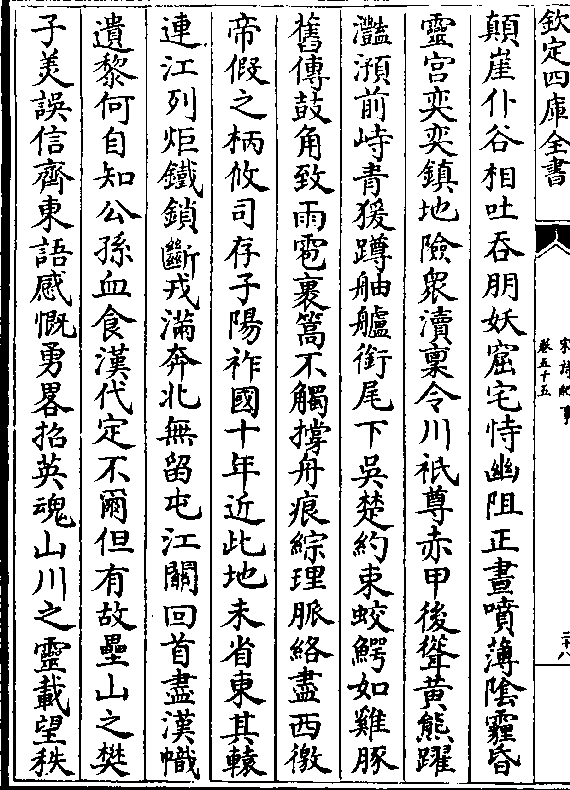 欽定四庫全書
宋詩紀事
卷五十五
二十八
顛崖仆谷相吐吞朋妖窟宅恃幽阻正晝噴薄陰霾昏
靈宫奕奕鎮地險衆瀆稟令川祇尊赤甲後聳黄熊躍
灩澦前峙青猨蹲舳艫銜尾下吳楚約束蛟鰐如雞豚
舊傳鼓角致雨雹裹篙不觸撐舟痕綜理脈絡盡西徼
帝假之柄攸司存子陽祚國十年近此地未省東其轅
連江列炬鐵鎖斷戎滿奔北無留屯江關回首盡漢幟
遺黎何自知公孫血食漢代定不爾但有故壘山之樊
子美誤信齊東語感慨勇畧招英魂山川之靈載望秩